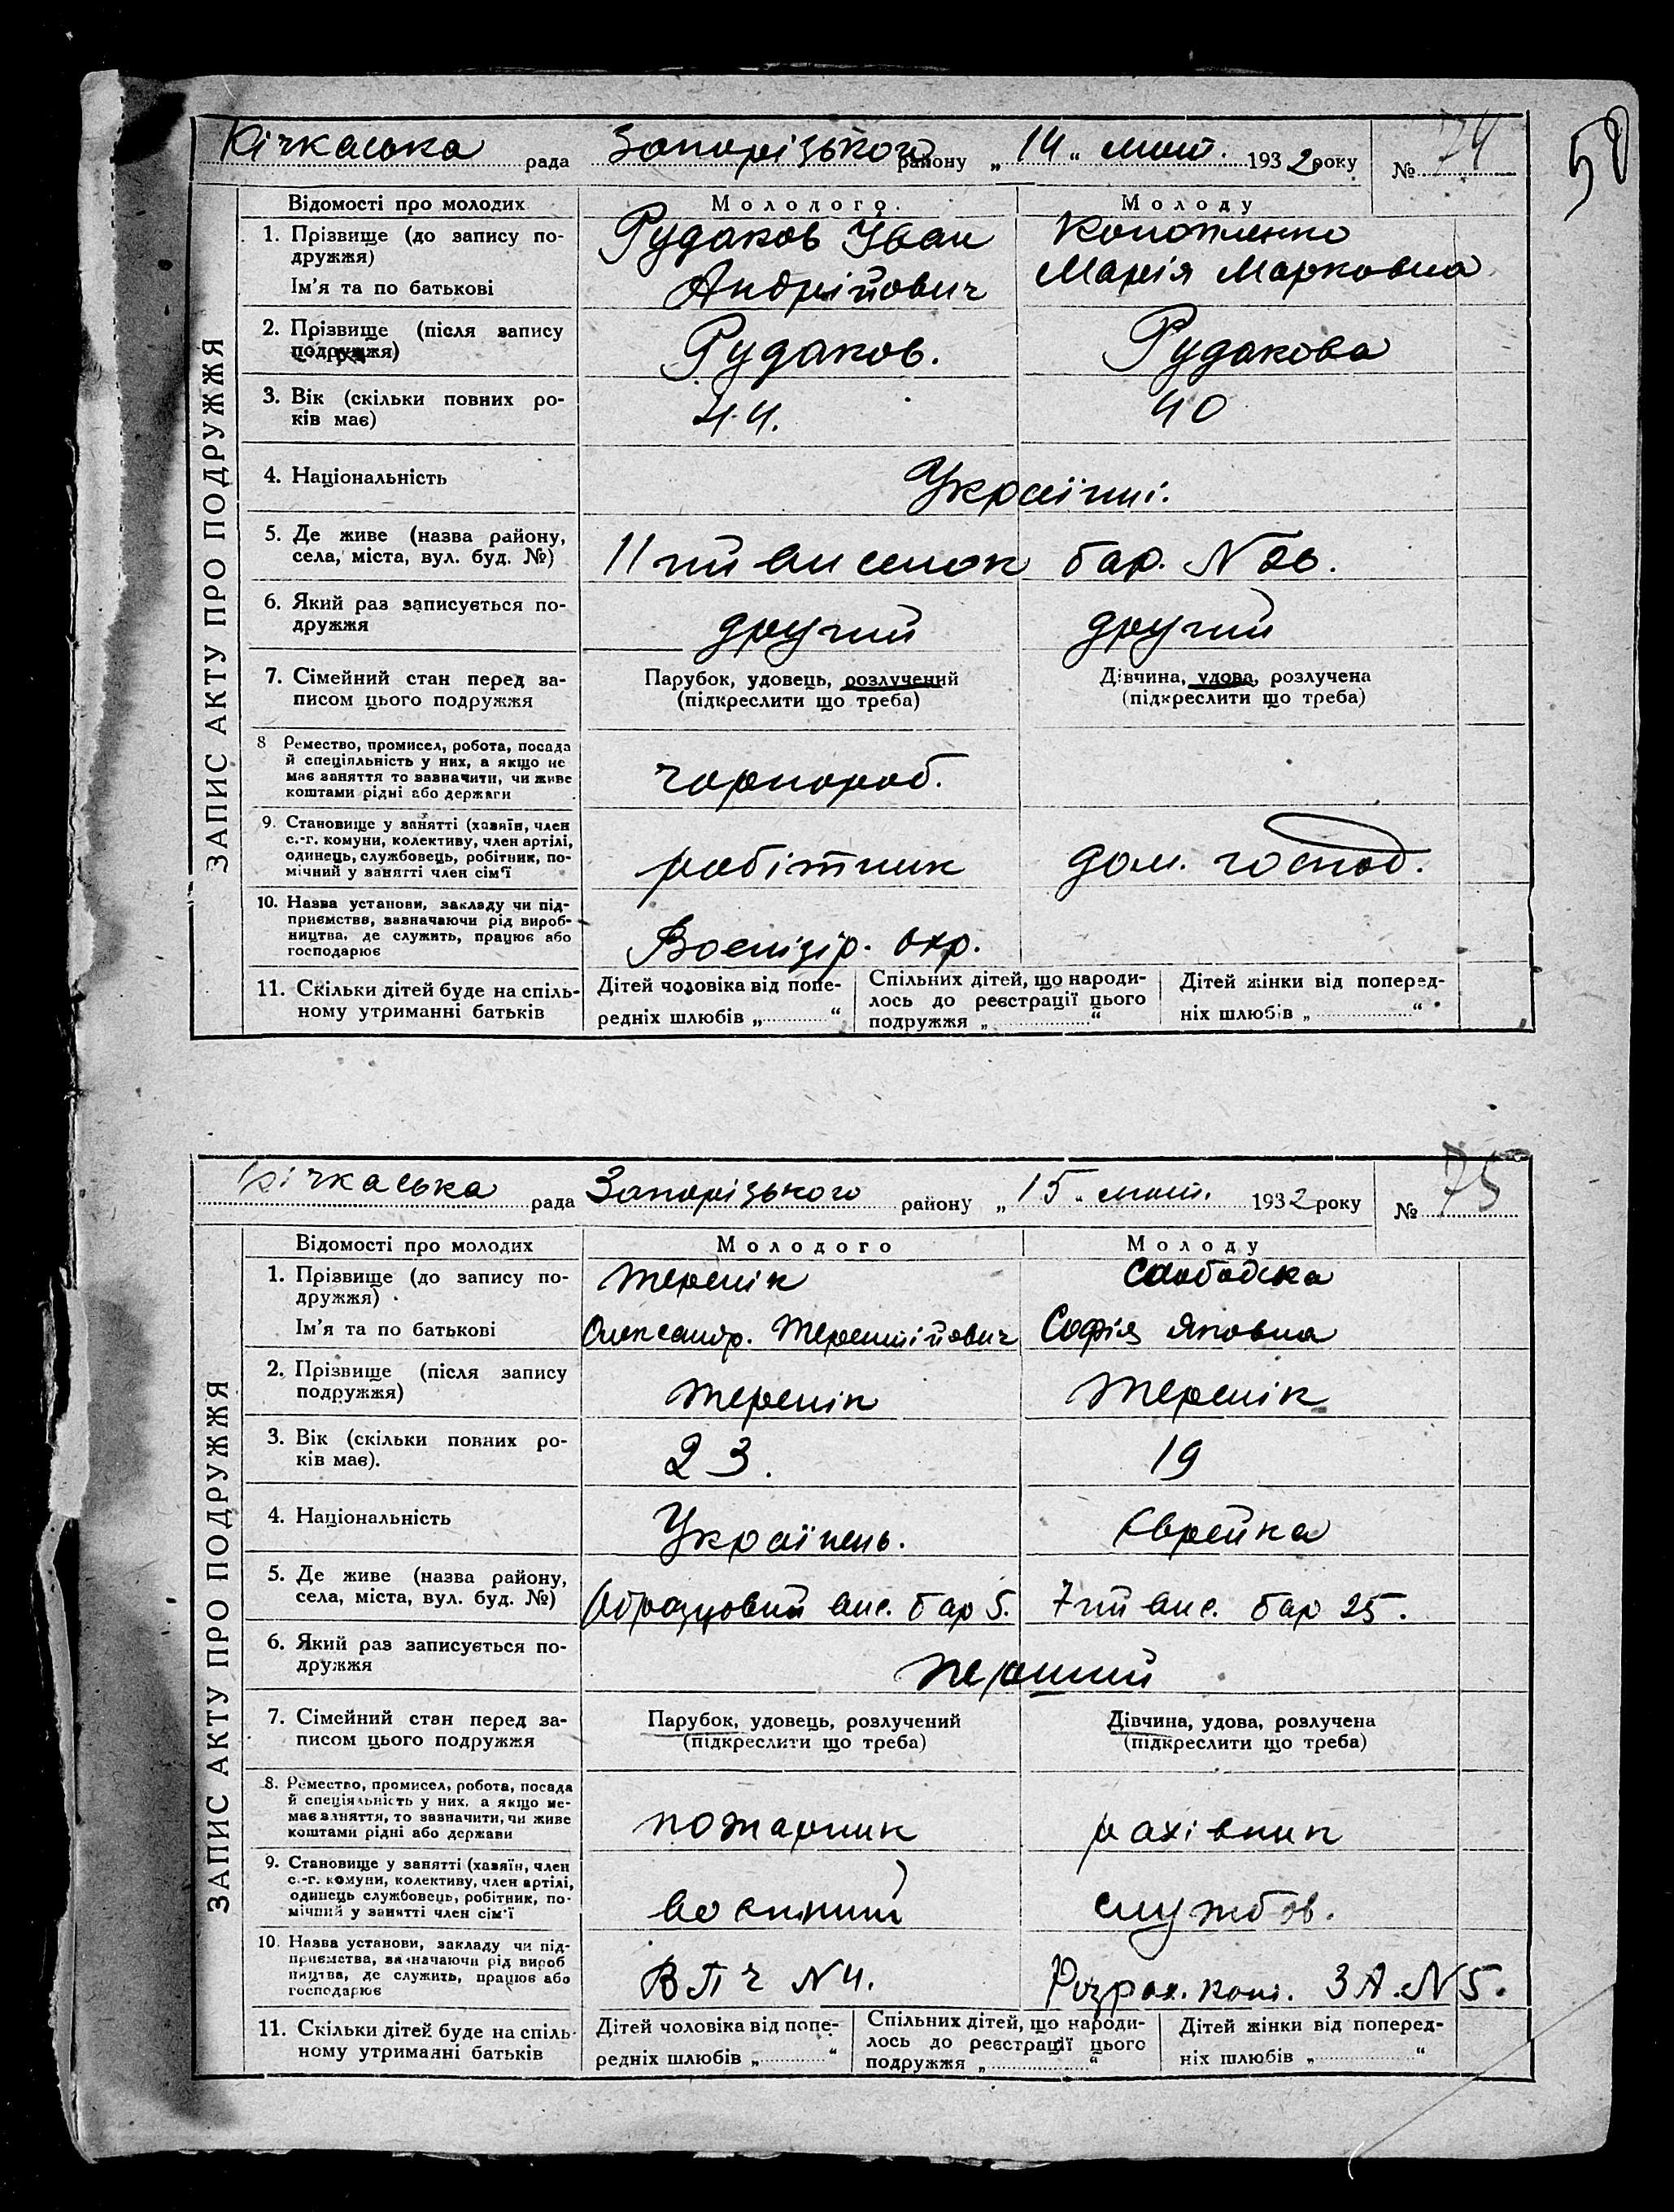 50
Кічкаська рада Запорізького району „ 14 „ 1932 року № 74
ЗАПИС АКТУ ПРО ПОДРУЖЖЯ
Відомості про молодих Молодого. Молоду
1. Прізвище (до запису по- Рудаков Іван
дружжя)
Ім'я та по батькові Андрійович Марія Марковна
2. Прізвище (після запису
подружжя) Рудаков. Рудакова
3. Вік (скільки повних ро-
ків має) 44. 40
4. Національність Українці.
5. Де живе (назва району,
села, міста, вул. буд. №) 11 тий виселок бар. N 26.
6. Який раз записується по-
дружжя другий другий
7. Сімейний стан перед за- Парубок, удовець, розлучений Дівчина, удова, розлучена
писом цього подружжя (підкреслити що треба) (підкреслити що треба)
8 Ремество, промисел, робота, посада
й спеціяльність у них, а якщо не
має заняття то зазначити, чи живе
коштами рідні або держави чорнороб.
9. Становище у занятті (хазяїн, член
с.-г. комуни, колективу, член артілі,
одинець, службовець, робітник, по-
мічний у занятті член сім'ї робітник дом. господ.
10. Назва установи, закладу чи під-
приємства, зазначаючи рід вироб-
ництва, де служить, працює або
господарює Воєнізір. охр.
11. Скільки дітей буде на спіль- Дітей чоловіка від попе- Спільних дітей, що народи- Дітей жінки від поперед-
ному утриманні батьків редніх шлюбів „ “ лось до реєстрації цього ніх шлюбів „ “
подружжя „ “
Кічкаська рада Запорізького району „ 15 „ 1932 року № 75
ЗАПИС АКТУ ПРО ПОДРУЖЖЯ
Відомості про молодих Молодого Молоду
1. Прізвище (до запису по- Теренік Слободска
дружжя)
Ім'я та по батькові Олександр. Терентійович Софія Яковна
2. Прізвище (після запису
подружжя) Теренік Теренік
3. Вік (скільки повних ро-
ків має). 23. 19
4. Національність Українець. Єврейка
5. Де живе (назва району,
села, міста, вул. буд. №) Образцовий вис. бар 5. 7 мий вис. бар 25.
6. Який раз записується по-
дружжя перший
7. Сімейний стан перед за- Парубок, удовець, розлучений Дівчина, удова, розлучена
писом цього подружжя (підкреслити що треба) (підкреслити що треба)
8. Ремество, промисел, робота, посада
й спеціяльність у них, а якщо не-
має заняття, то зазначити, чи живе
коштами рідні або держави пожарник рахівник
9. Становище у занятті (хазяїн, член
с.-г. комуни, колективу, член артілі,
одинець службовець, робітник, по-
мічний у занятті член сім'ї воєнний службов.
10. Назва установи, закладу чи під-
приємства, зазначаючи рід вироб
ництва, де служить, працює або
господарює ВПЧ N 4. Розрах. кон. ЗА. N 5.
11. Скільки дітей буде на спіль- Дітей чоловіка від попе- Спільних дітей, що народи- Дітей жінки від поперед-
ному утриманні батьків редніх шлюбів „ “ лось до реєстрації цього ніх шлюбів „ “
подружжя „ “